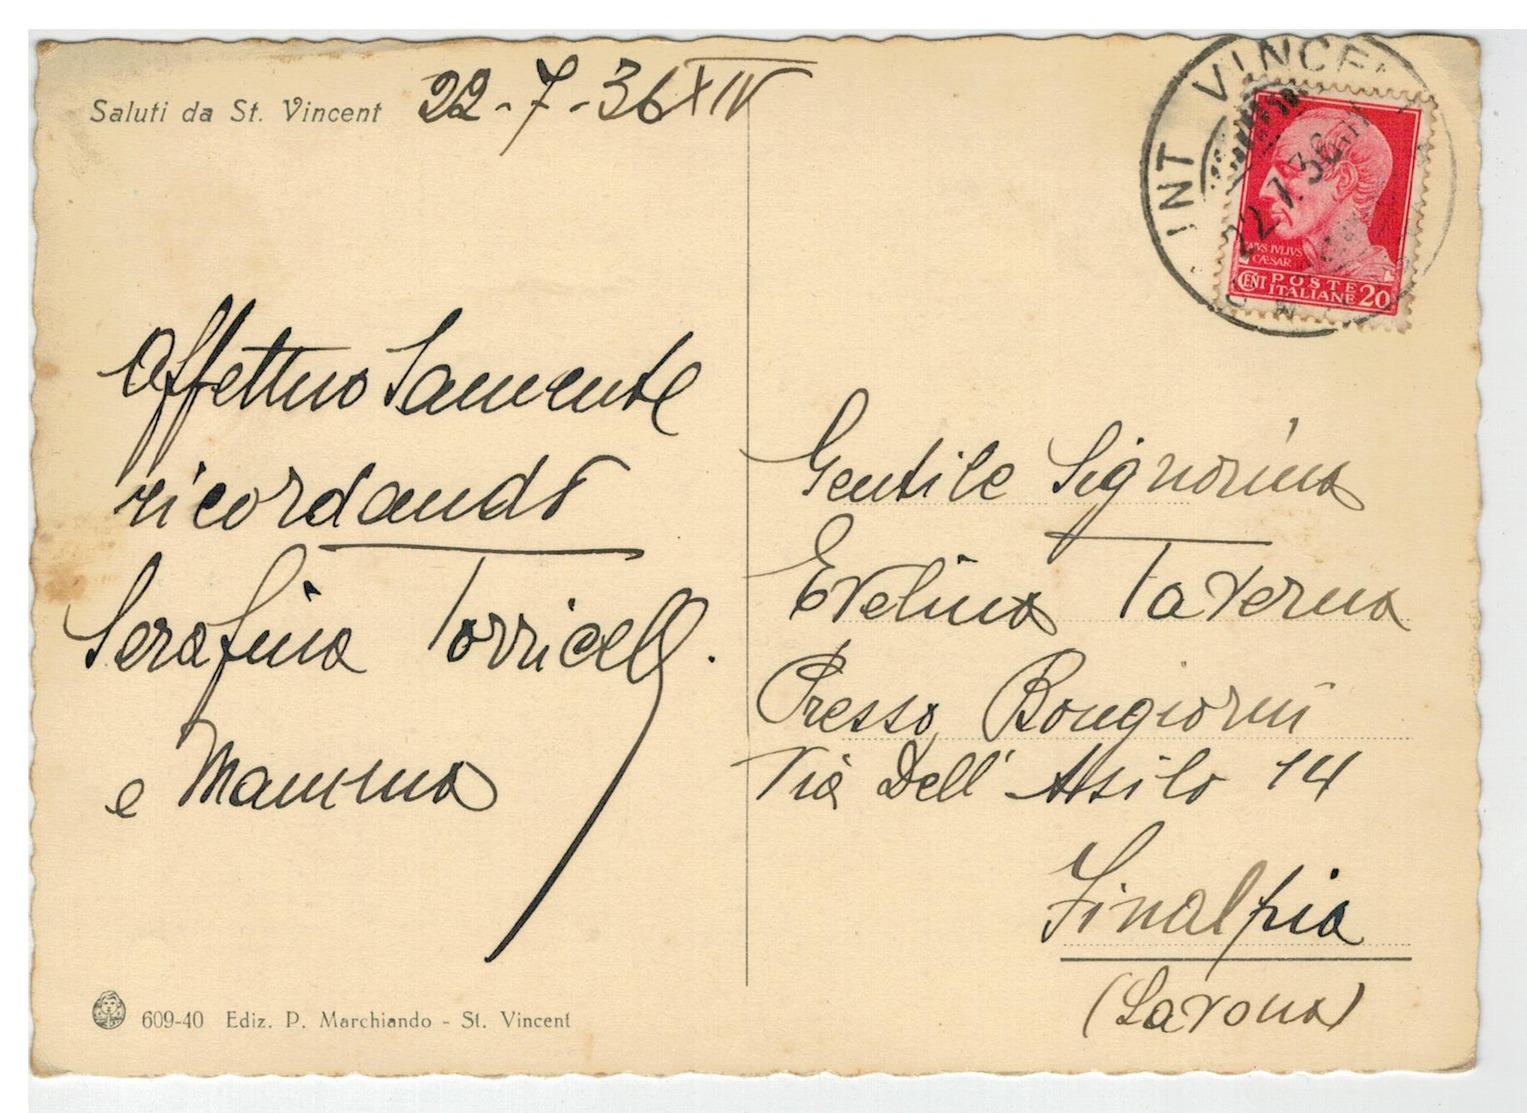 Saluti da St. Vincent 22-7-36 XIV
Affettuosamente
ricordando
Serafina Torricelli
e Mamma
609-40 Ediz. P. Marchiando - St. Vincent
INT VINCEN
22.7.36
IVLIVS
CÆSAR
CENT POSTE
ITALIANE 20
Gentile Signorina
Evelina Taverna
Presso Bongiorni
Via Dell' Asilo 14
Finalpia
(Savona)